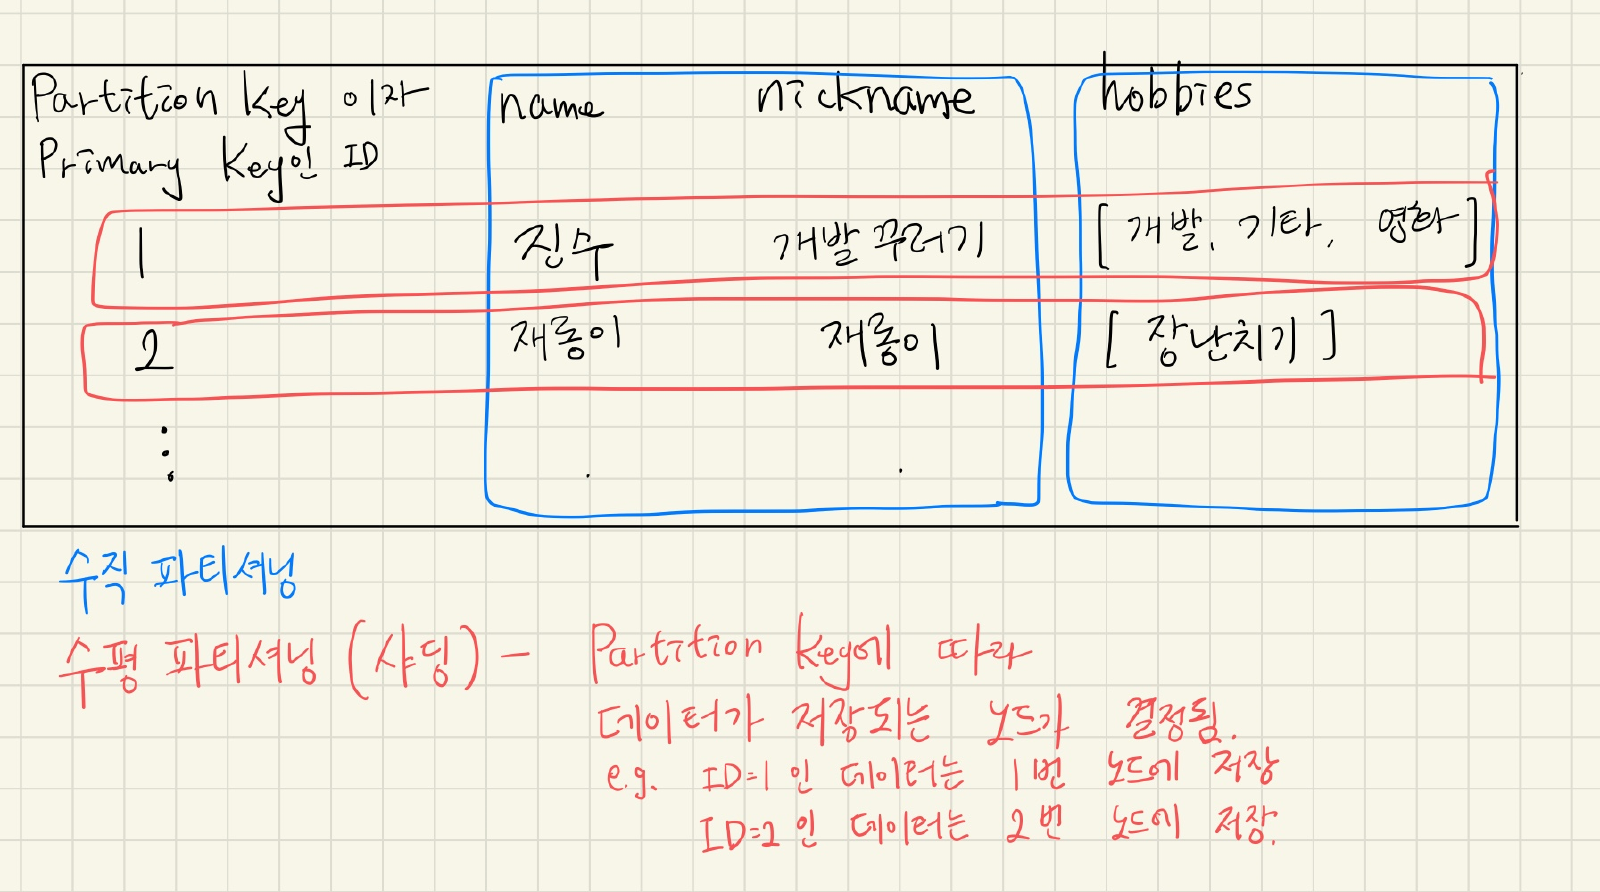 Partition Key 이자
Primary Key인 ID
name nickname hobbies
1 진수 개발 꾸러기 [ 개발, 기타, 영화 ]
2 재롱이 재롱이 [ 장난치기 ]
수직 파티셔닝
수평 파티셔닝 (샤딩) - Partition Key에 따라
데이터가 저장되는 노드가 결정됨.
e.g. ID=1 인 데이터는 1번 노드에 저장
ID=2 인 데이터는 2번 노드에 저장.